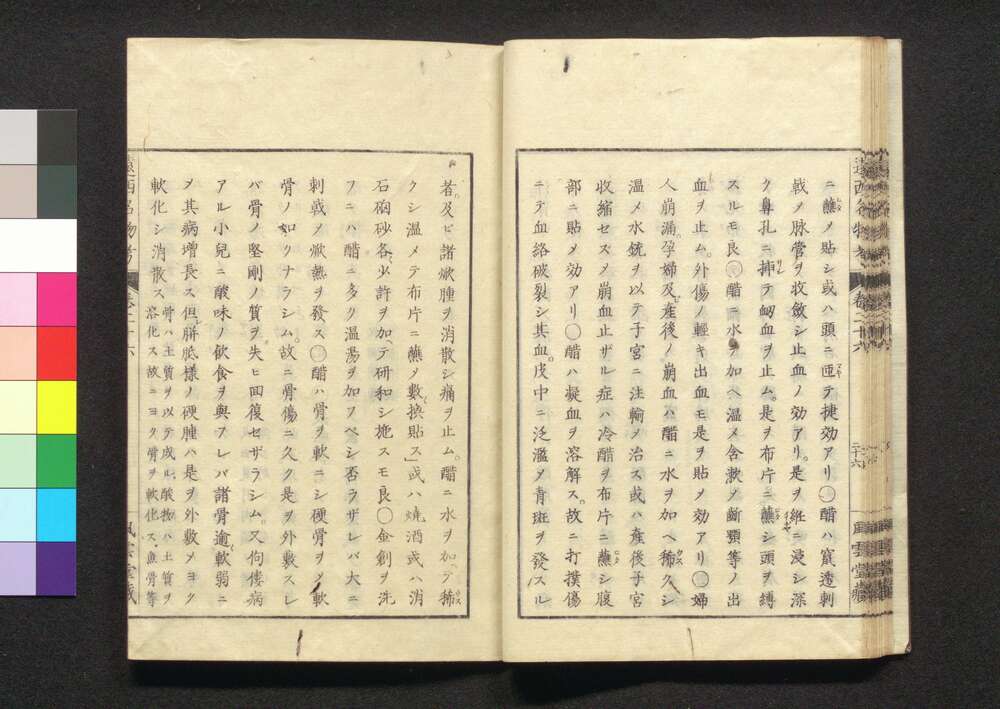 ニ蘸メ貼シ或ハ頭ニ匝テ捷効アリ○醋ハ竄透刺
戟メ脉管ヲ收斂シ止血ノ効アリ。是ヲ綿ニ浸シ深
ク鼻孔ニ挿テ衂血ヲ止ム。是ヲ布片ニ蘸シ頭ヲ縛
スルモ良○醋ニ水ヲ加ヘ温メ含漱メ齗顎等ノ出
血ヲ止ム。外傷ノ輕キ出血モ是ヲ貼メ効アリ○婦
人崩漏。孕婦及産後ノ崩血ハ醋ニ水ヲ加ヘ稀久シ
温メ水銃ヲ以テ子宮ニ注輸メ治ス或ハ産後子宮
收縮セスメ崩血止ザル症ハ冷醋ヲ布片ニ蘸シ腹
部ニ貼メ効アリ○醋ハ凝血ヲ溶解ス。故ニ打撲傷
ニテ血絡破裂シ其血。皮中ニ泛濫メ青斑ヲ發スル
者。及ビ諸焮腫ヲ消散シ痛ヲ止ム。醋ニ水ヲ加ヘテ稀
クシ温メテ布片ニ蘸メ數換貼ス」或ハ燒酒或ハ消
石硇砂各少許ヲ加ヘテ研和シ施スモ良○金創ヲ洗
フニハ醋ニ多ク温湯ヲ加フベシ否ラザレバ大ニ
刺戟メ焮熱ヲ發ス○醋ハ骨ヲ軟ニシ硬骨ヲメ軟
骨ノ如クナラシム。故ニ骨傷ニ久ク是ヲ外敷スレ
バ骨ノ堅剛ノ質ヲ失ヒ囬復セザラシム。又佝僂病
アル小兒ニ酸味ノ飲食ヲ與フレバ諸骨逾軟弱ニ
メ其病増長ス但胼胝様ノ硬腫ハ是ヲ外敷メヨク
軟化シ消散ス 骨ハ土質ヲ以テ成ル酸物ハ土質ヲ
溶化ス故ニヨク骨ヲ軟化ス魚骨等
遠西名物考 卷二十六 二十六 風雲堂藏
遠西名物考 卷二十六 風雲堂藏